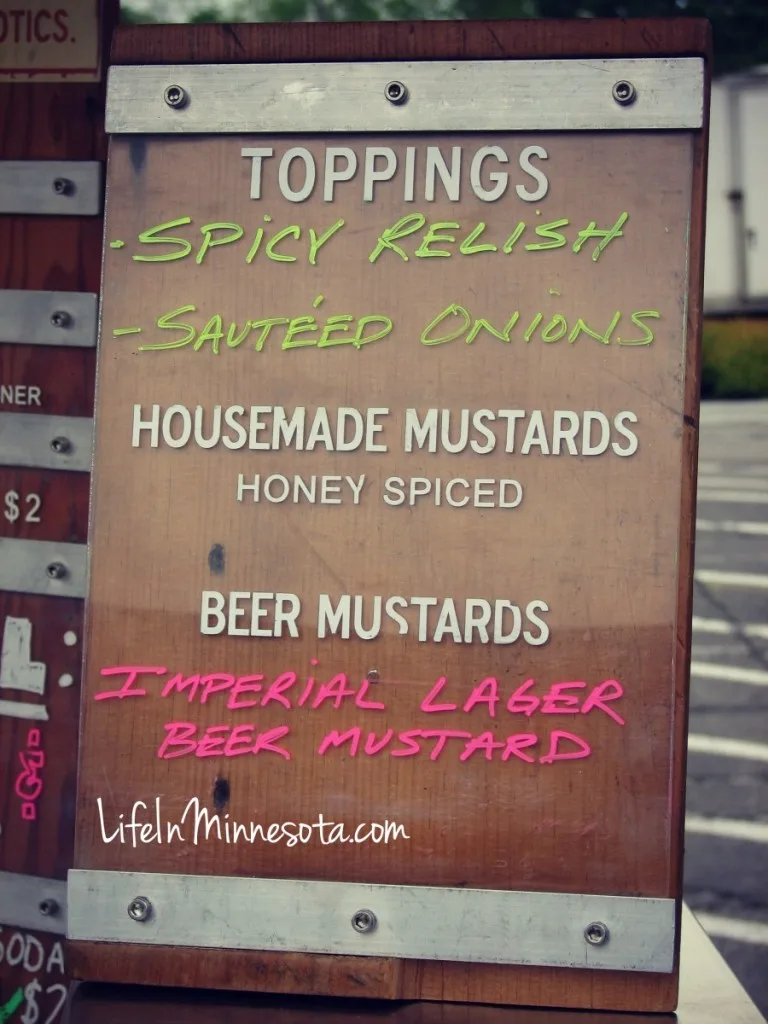 OTICS.
TOPPINGS
- SPICY RELISH
- SAUTÉED ONIONS
HOUSEMADE MUSTARDS
HONEY SPICED
BEER MUSTARDS
IMPERIAL LAGER
BEER MUSTARD
LifeInMinnesota.com
NER
$2
SODA